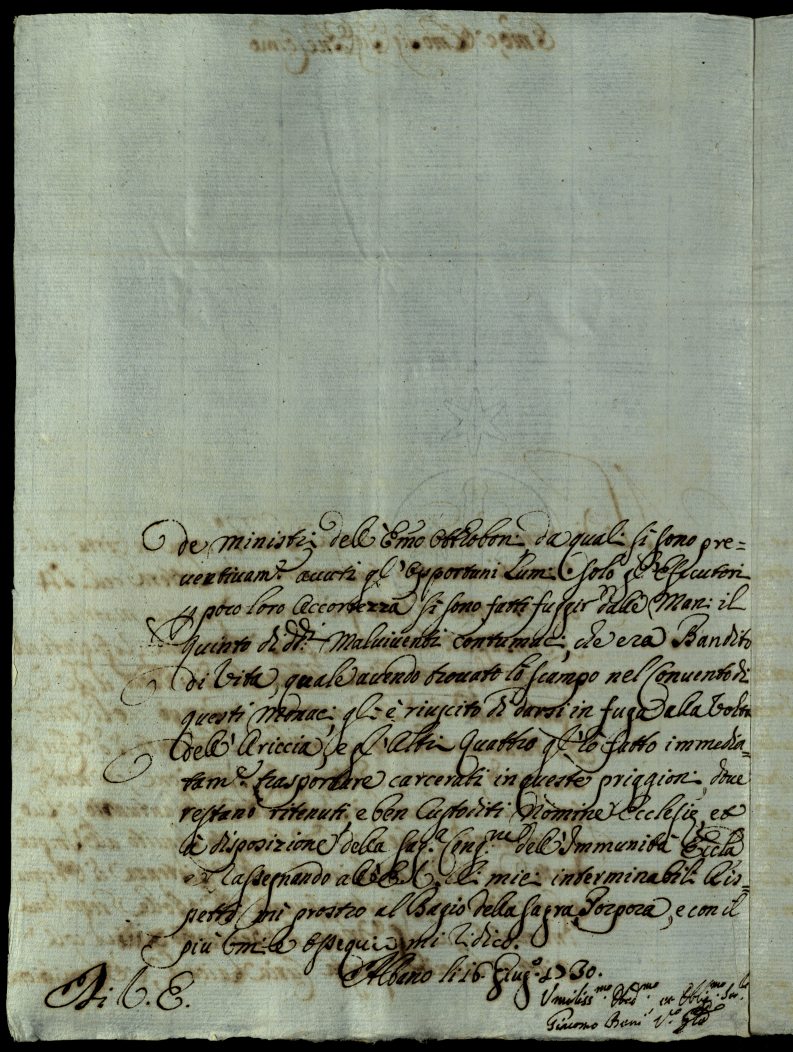 de ministri dell'Emo Ottobon: da quali si sono pre=
ventivam.e avuti gl'opportuni lumi. Solo gl'Essecutori
p poco loro accortezza si sono fatti fuggir dalle Mani il
quinto di dd.i Malviventi contumaci, che era Bandito
di Vita, quale avendo trovato lo scampo nel Convento di
questi Monaci gl'è riuscito di darsi in fuga alla volta
dell'Ariccia, e gl'Altri quattro gl'ho fatto immedia=
tam.e trasportare carcerati in queste priggioni, dove
restano ritenuti, e ben custoditi Nomine Ecclesie, et
à disposizione della Sag.a Cong.ne dell'Immunità Eccla
Rassegnando all'E.V. li miei interminabili Ris=
petti mi prostro al Bagio della Sagra Porpora, e con il
più umile ossequio mi ridico.
Albano li 16 Giug.o 1730.
Di V. E.
Umiliss.mo Dev.mo et Oblig.mo Ser.re
Giacomo